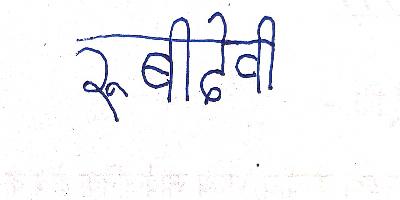 रूबी देवी